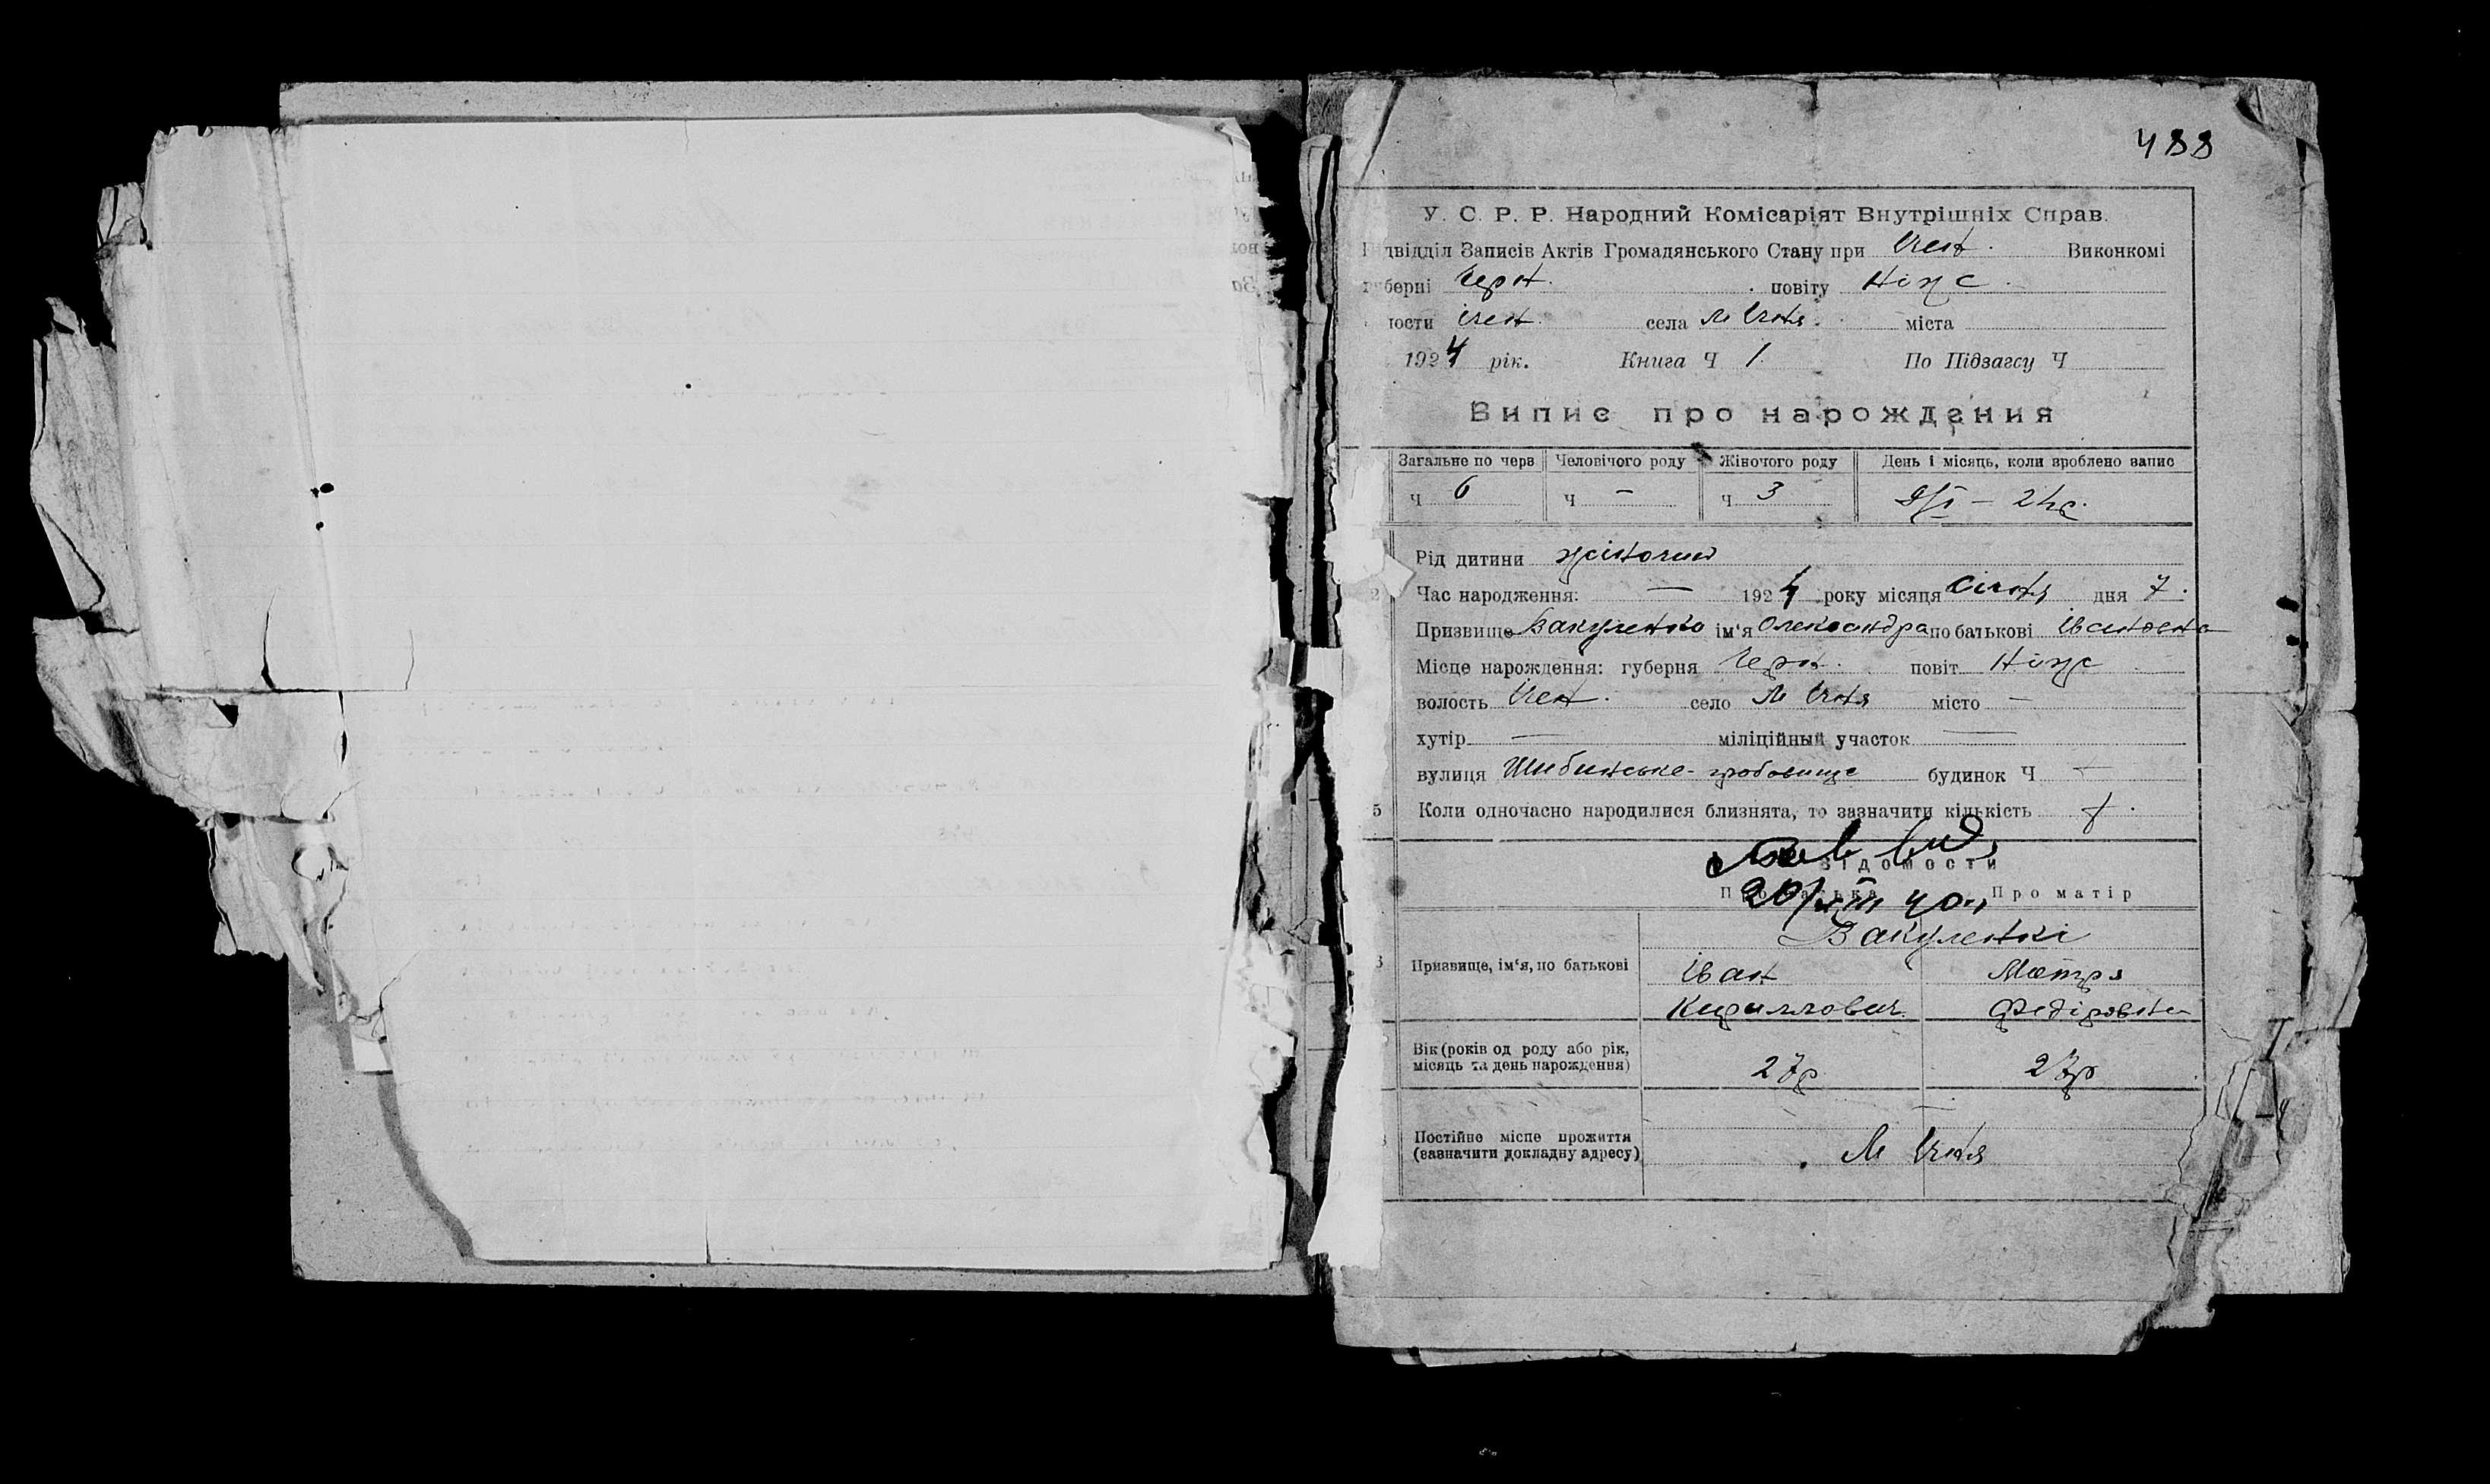 488
У. С. Р. Р. Народний Комісаріят Внутрішніх Справ.
двідділ Записів Актів Громадянського Стану при Ічен. Виконкомі
губерні Черн. повіту Ніж с.
ности Ічен. села М Ічня. міста
1924 рік. Книга Ч 1. По Підзагсу Ч
Випис про нарождення
Загальне по черв Человічого роду Жіночого роду День і місяць, коли вроблено вапис
Ч 6 Ч — Ч 3 9/I – 24р.
Рід дитини жіночий
2 Час народження: — 1924 року місяця Січня дня 7.
Призвище Вакуленко ім'я Олександра по батькові Івановна
Місце нарождення: губерня Черн. повіт Ніжс
волость Ічен. село М Ічня місто —
хутір — міліційный участок —
вулиця Шибинське- будинок Ч —
5 Коли одночасно народилися близнята, то зазначити кількість
Відомости
20/VIII 40
Про батька Про матір
Вакуленкі
Призвище, ім'я, по батькові Іван Мотря
Кириллович Федіровна
Вік (років од роду або рік,
місяць та день нарождення) 27р 27р
Постійне місце прожиття
(вазначити докладну адресу) М Ічня